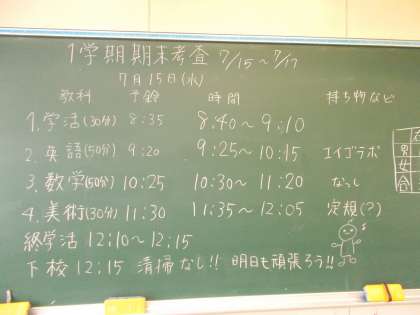 1学期期末考査 7/15～7/17
7月15日(水)
教科 予鈴 時間 持ち物など
1.学活(30分) 8:35 8:40～9:10
2.英語(50分) 9:20 9:25～10:15 エイゴラボ
3.数学(50分) 10:25 10:30～11:20 なっし
4.美術(30分) 11:30 11:35～12:05 定規(?)
終学活 12:10～12:15
下校 12:15 清掃なし!! 明日も頑張ろう!!
男
女
合